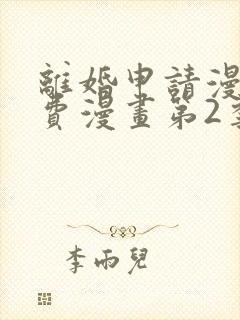 離婚申請漫
費漫畫第2季
李雨兒